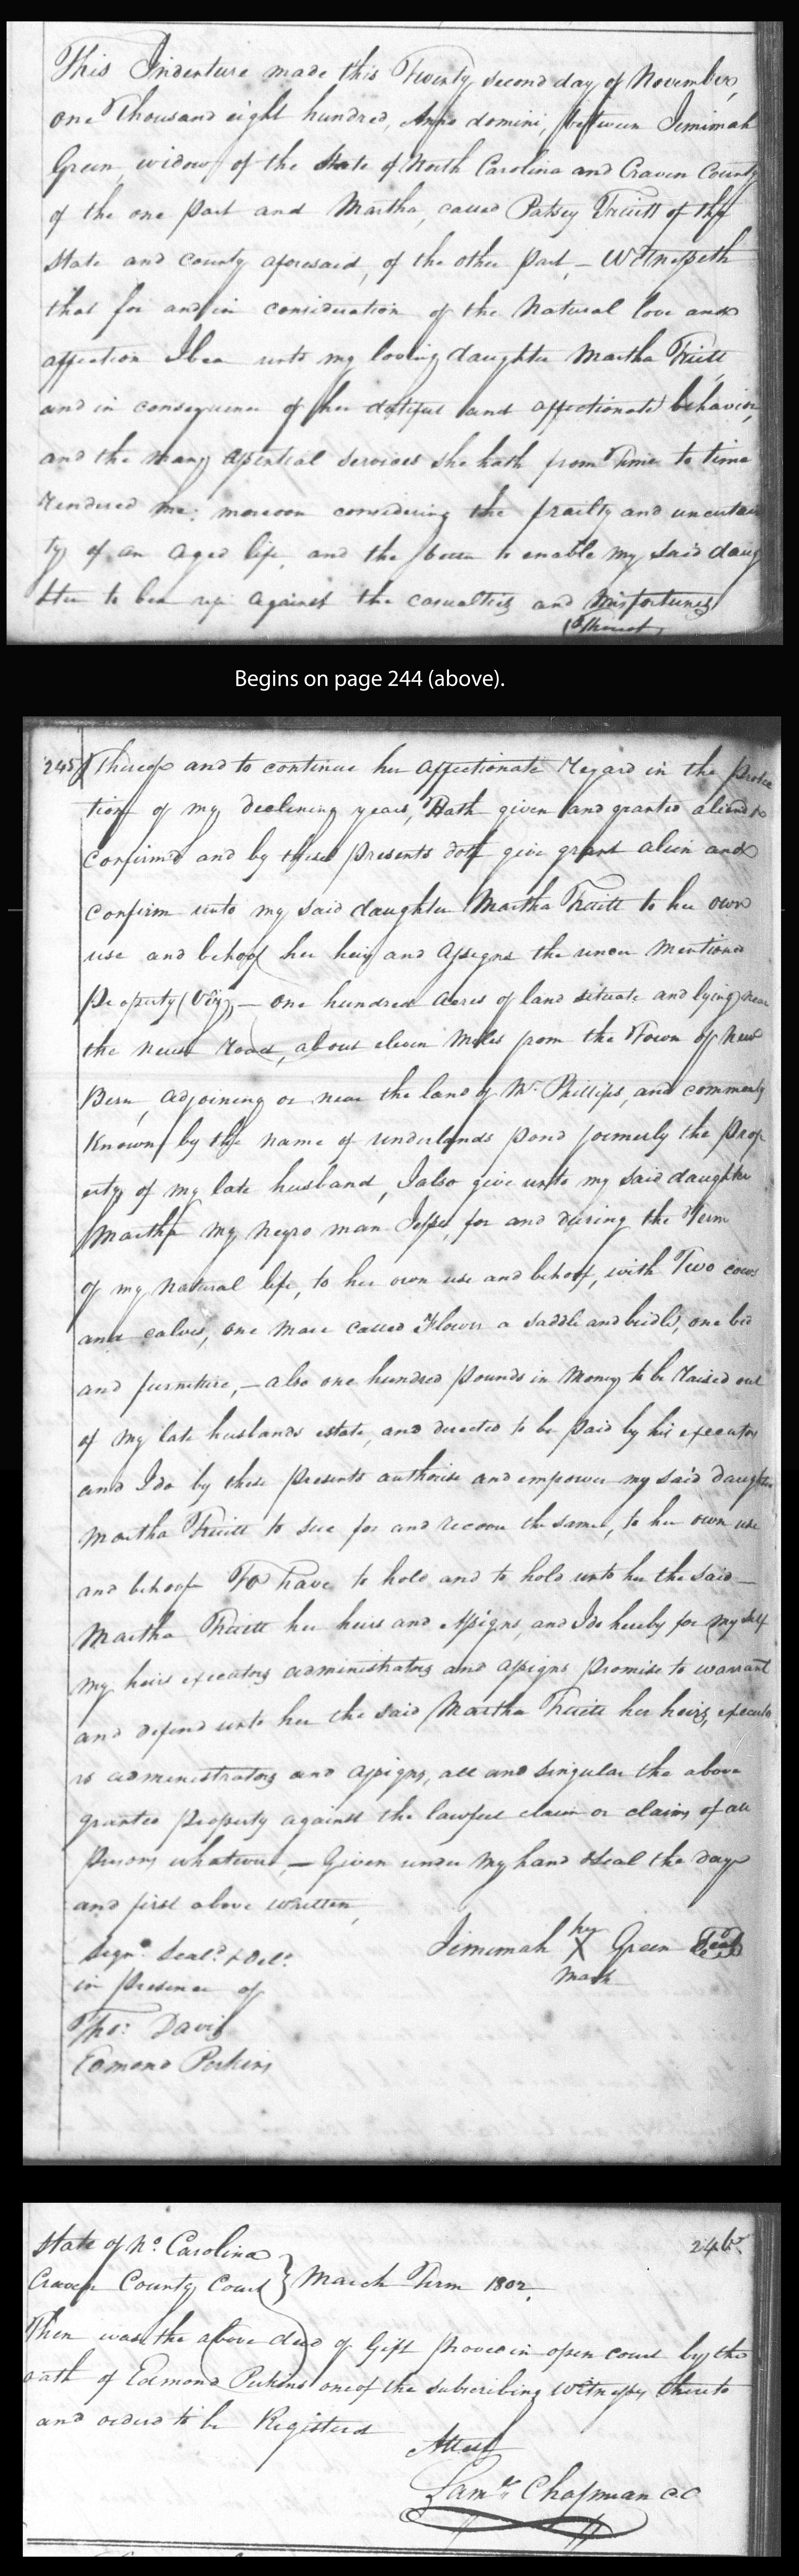 This Indenture made this Twenty second day of November,
one Thousand eight hundred, Anno domini, between Jemimah
Green, widow of the State of North Carolina and Craven County
of the one part and Martha, called Patsey Truitt of the
State and County aforesaid, of the other part, – Witnesseth
that for and in consideration of the Natural love and
affection I bea unto my loving daughter Martha Truitt
and in consequence of her dutiful and affectionate behavior,
and the many essential services she hath from Time to time
rendered me: moreover considering the frailty and uncertain
ty of an aged life, and the better to enable my said daug
hter to bear up against the casualties and misfortunes
Thereof
Begins on page 244 (above).
245 Thereof and to continue her affectionate regard in the protec
tion of my declining years, Hath given and granted aliend &
confirm'd and by these presents doth give grant alien and
confirm unto my said daughter Martha Truitt to her own
use and behoof her heirs and assigns the under mentioned
property (Viz), – one hundred acres of land situate and lying near
the neuse road, about eleven miles from the Town of New
Bern, adjoining or near the land of Mr. Phillips, and commonly
known by the name of underlands pond formerly the prop
erty of my late husband, I also give unto my said daughter
Martha my negro man Jesse, for and during the Term
of my natural life, to her own use and behoof, with Two cows
and calves, one mare called Flower a saddle and bridle, one bed
and furniture, – also one hundred pounds in money to be raised out
of my late husbands estate, and directed to be paid by his executors
and I do by these presents authorise and empower my said daughter
Martha Truitt to sue for and recover the same, to her own use
and behoof To have to hold and to hold unto her the said –
Martha Truitt her heirs and assigns, and I do hereby for my self
my heirs executors administrators and assigns promise to warrant
and defend unto her the said Martha Truitt her heirs, executo
rs administrators and assigns, all and singular the above
granted property against the lawful claim or claims of all
persons whatever, – Given under my hand & seal the day
and first above written,
Signd. Seald. & Deld. Jimimah her X mark Green Seal
in presence of
Tho: Davis
Edmond Perkins
State of No. Carolina 246
Craven County Court } March Term 1802.
Then was the above deed of Gift proved in open court by the
oath of Edmond Perkins one of the subscribing witnesses thereto
and ordered to be Registered
Attest
Saml. Chapman CC